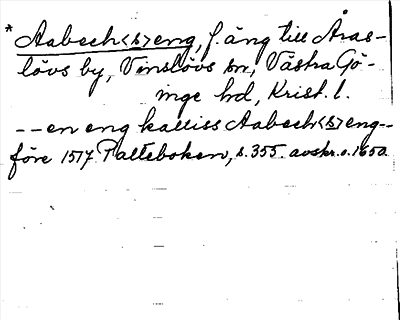 * Aabech<s>eng, f. äng till Åras-
lövs by, Vinslövs sn, Västra Gö-
inge hd, Krist. l.
-- en eng kalliss Aabech<s>eng --
före 1517 Palteboken, s. 355. avskr. o. 1650.